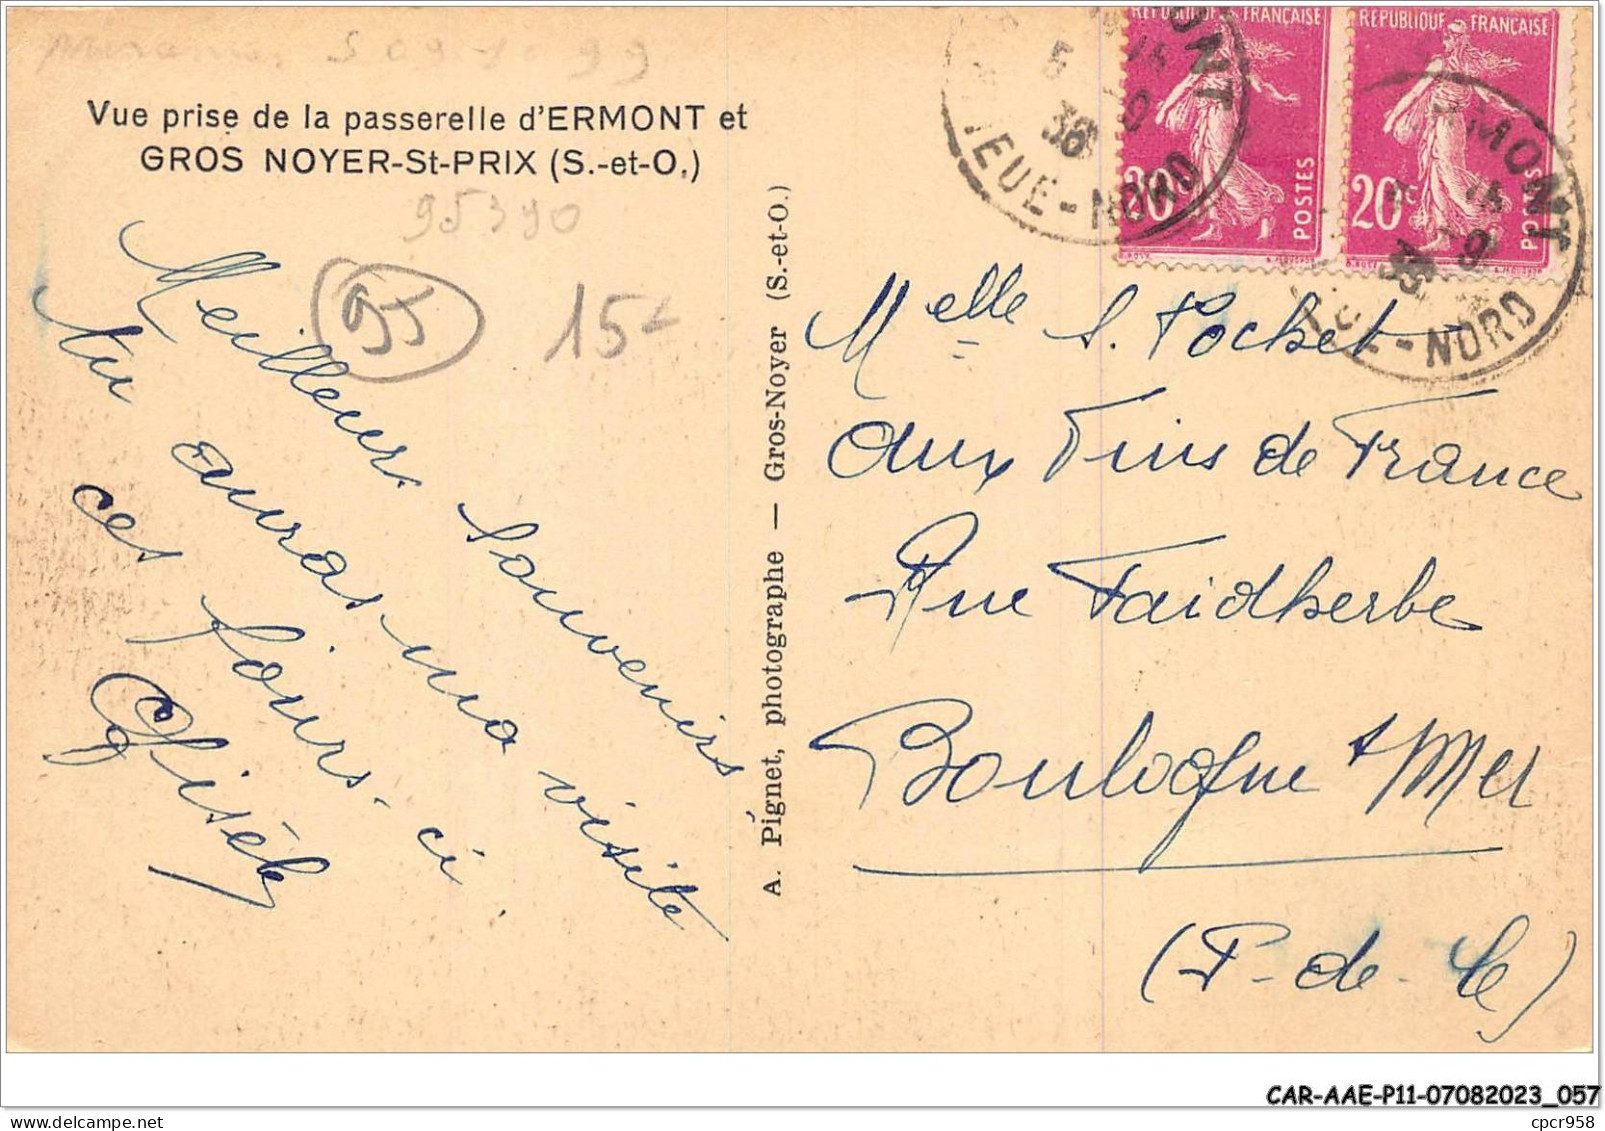 Vue prise de la passerelle d'ERMONT et
GROS NOYER-St-PRIX (S.-et-O.)
95390
95
15
Meilleurs souvenirs
Tu auras ma visite
ces jours-ci
A. Pignet, photographe — Gros-Noyer (S.-et-O.)
RÉPUBLIQUE FRANÇAISE
20c
POSTES
RÉPUBLIQUE FRANÇAISE
20c
POSTES
38
EUE-NORD
MONT
-NORD
Melle S. Pochet
aux Vins de France
Rue Faidherbe
Boulogne s/Mer
(P-de-C)
CAR-AAE-P11-07082023_057
cpcr958